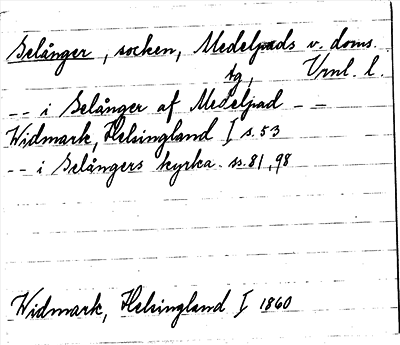 Selånger, socken, Medelpads v. doms.
tg, Vrnl. l.
-- i Selånger af Medelpad --
Widmark, Helsingland I s. 53
-- i Selångers kyrka ss. 81, 98
Widmark, Helsingland I 1860